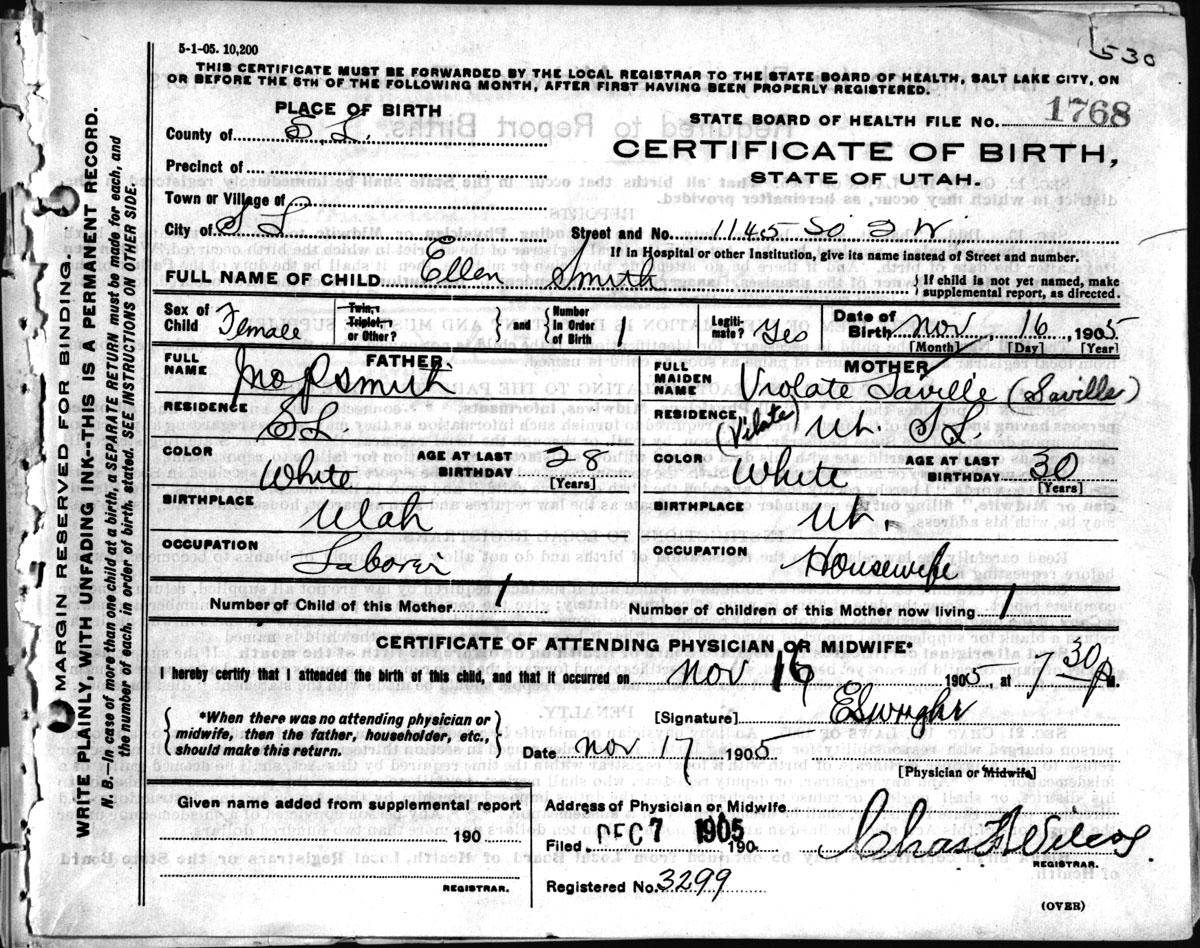 530
5-1-05. 10,200
THIS CERTIFICATE MUST BE FORWARDED BY THE LOCAL REGISTRAR TO THE STATE BOARD OF HEALTH, SALT LAKE CITY, ON
OR BEFORE THE 5TH OF THE FOLLOWING MONTH, AFTER FIRST HAVING BEEN PROPERLY REGISTERED.
PLACE OF BIRTH
STATE BOARD OF HEALTH FILE NO. 1768
County of S. L.
CERTIFICATE OF BIRTH,
Precinct of
STATE OF UTAH.
Town or Village of
City of S L Street and No. 1145 So 2 W
If in Hospital or other Institution, give its name instead of Street and number.
FULL NAME OF CHILD Ellen Smith { If child is not yet named, make
supplemental report, as directed.
Sex of Child Female Twin, Triplet, or Other? } and { Number In Order of Birth 1 Legitimate? Yes Date of Birth Nov 16, 1905
[Month] [Day] [Year]
FATHER
FULL NAME Jno P Smith
MOTHER
FULL MAIDEN NAME Violate Laville (Saville)
RESIDENCE S L
RESIDENCE (Vilate) Ut. S L.
COLOR White AGE AT LAST BIRTHDAY 28 [Years]
COLOR White AGE AT LAST BIRTHDAY 30 [Years]
BIRTHPLACE Utah
BIRTHPLACE Ut.
OCCUPATION Laborer
OCCUPATION Housewife
Number of Child of this Mother 1 Number of children of this Mother now living 1
CERTIFICATE OF ATTENDING PHYSICIAN OR MIDWIFE*
I hereby certify that I attended the birth of this child, and that it occurred on Nov 16 1905, at 7 30 P M.
{ *When there was no attending physician or
midwife, then the father, householder, etc.,
should make this return. }
[Signature] E S Wright
Date Nov 17 1905
[Physician or Midwife]
Given name added from supplemental report
190
REGISTRAR.
Address of Physician or Midwife
Filed DEC 7 1905 190
REGISTRAR.
Registered No. 3299
(OVER)
MARGIN RESERVED FOR BINDING.
WRITE PLAINLY, WITH UNFADING INK--THIS IS A PERMANENT RECORD.
N. B.—In case of more than one child at a birth, a SEPARATE RETURN must be made for each, and
the number of each, in order of birth, stated. SEE INSTRUCTIONS ON OTHER SIDE.